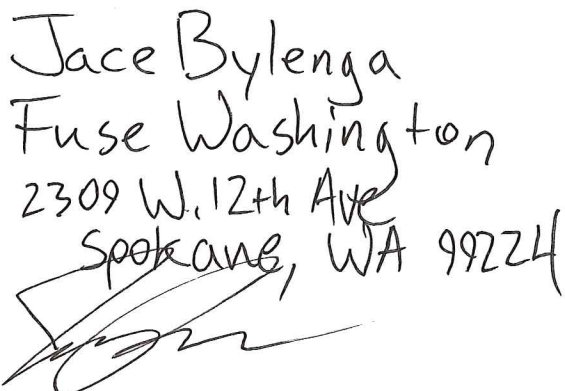 Jace Bylenga
Fuse Washington
2309 W. 12th Ave
Spokane, WA 99224